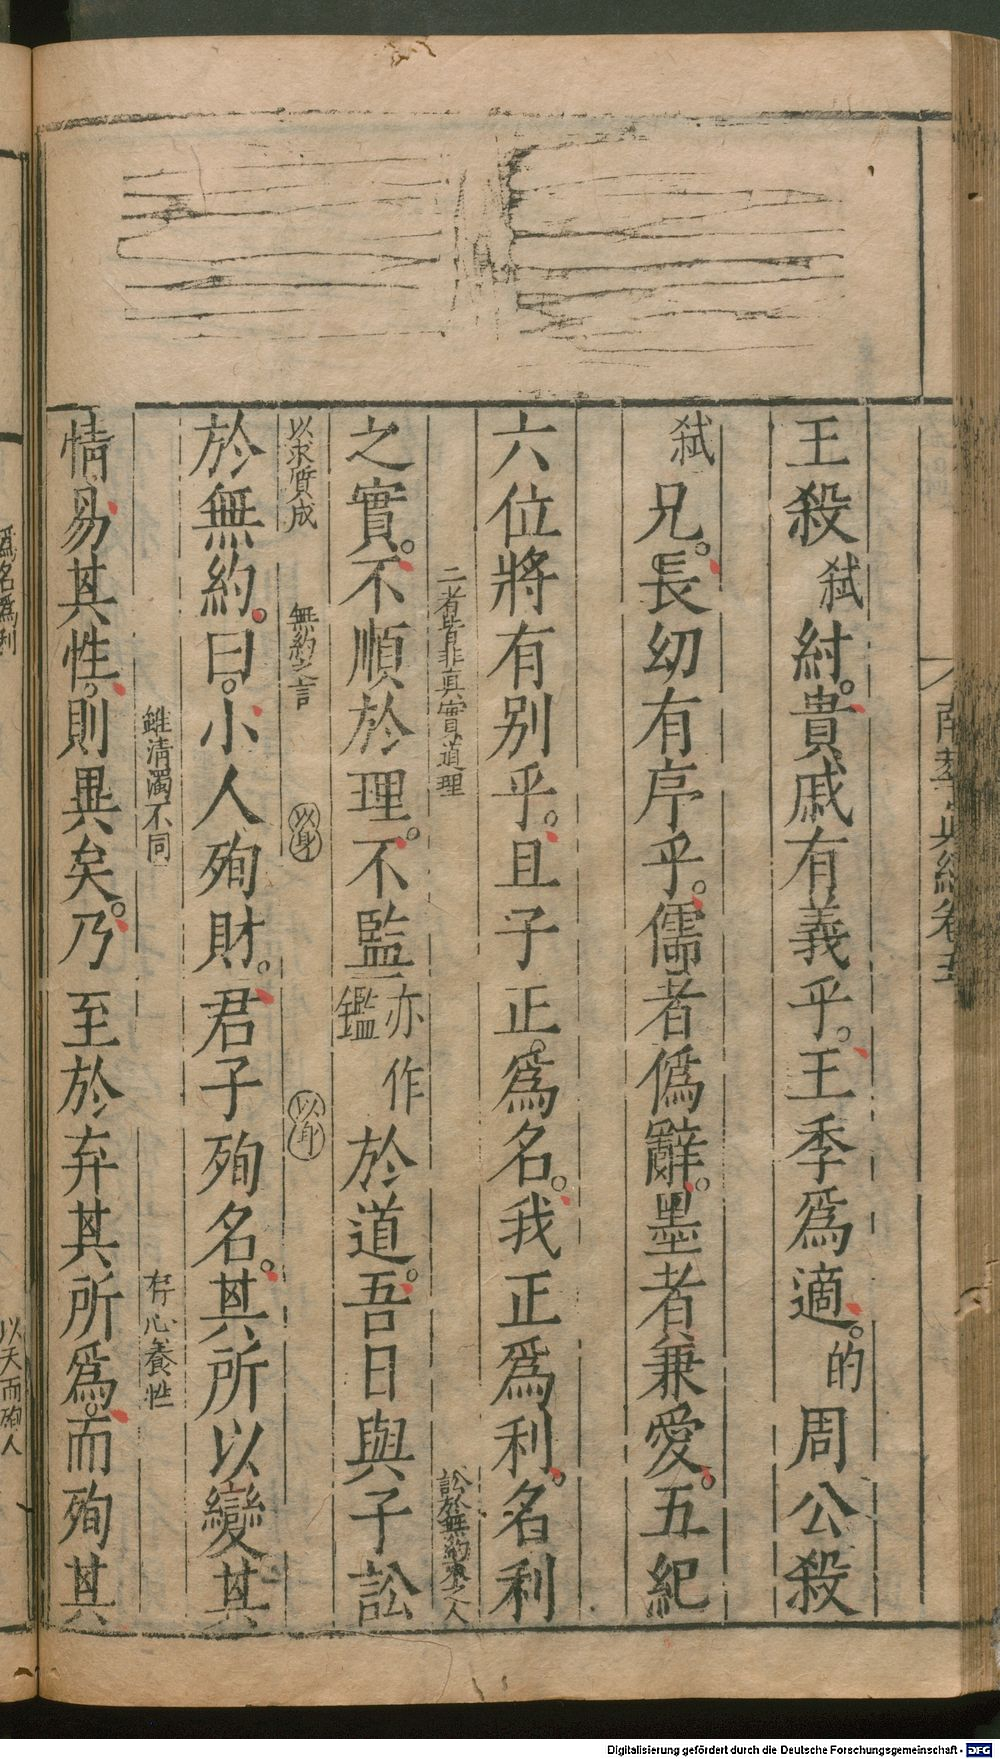 南華真經卷五
王殺弑紂。貴戚有義乎。王季爲適。的周公殺
弑兄。長幼有序乎。儒者僞辭。墨者兼愛。五紀
六位將有别乎。且子正。爲名。我正爲利。名利
二者皆非真實道理
訟於無約
之人
之實。不順於理。不監亦作鑑於道。吾日與子訟
以求質成
無約之言
以身
以身
於無約。曰。小人殉財。君子殉名。其所以變其
雖清濁不同
存心養性
情。易其性。則異矣。乃至於弃其所爲。而殉其
爲名爲利
以天而殉人
Digitalisierung gefördert durch die Deutsche Forschungsgemeinschaft - DFG